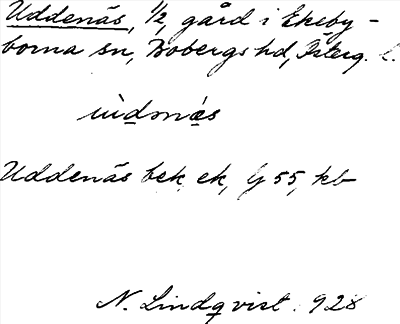 Uddenäs, 1/2, gård i Ekeby-
borna sn, Bobergs hd, Österg. l.
ùdnǽs
Uddenäs bek, ek, G 55, kb
N. Lindqvist. 928